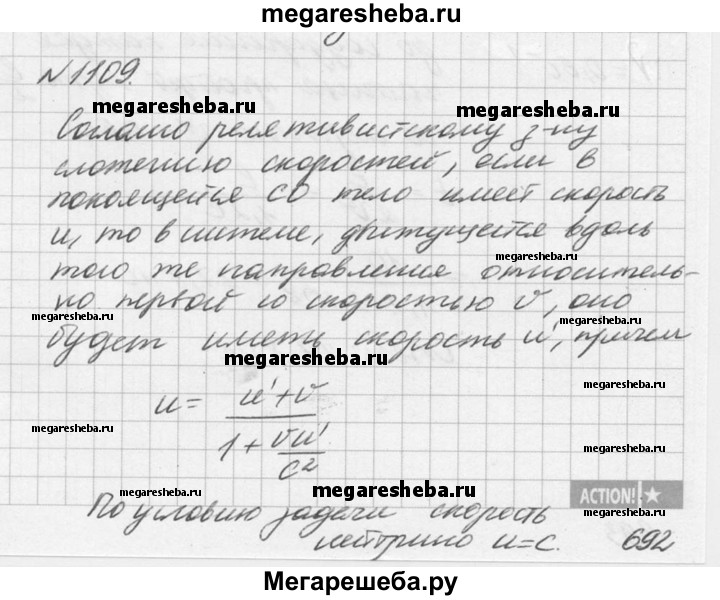 megaresheba.ru
N 1109.
megaresheba.ru
megaresheba.ru
Согласно релятивистскому з-ну
сложению скоростей, если в
покоящейся СО тело имеет скорость
u, то в системе, движущейся вдоль
megaresheba.ru
того же направления относитель-
но первой со скоростью v, оно
megaresheba.ru
megaresheba.ru
будет иметь скорость u', причем
megaresheba.ru
megaresheba.ru
u = u' + v
1 + vu'
c²
megaresheba.ru
megaresheba.ru
megaresheba.ru
megaresheba.ru
ACTION!
По условию задачи скорость
megaresheba.ru
нейтрино u=c. 692
Мегарешеба.ру